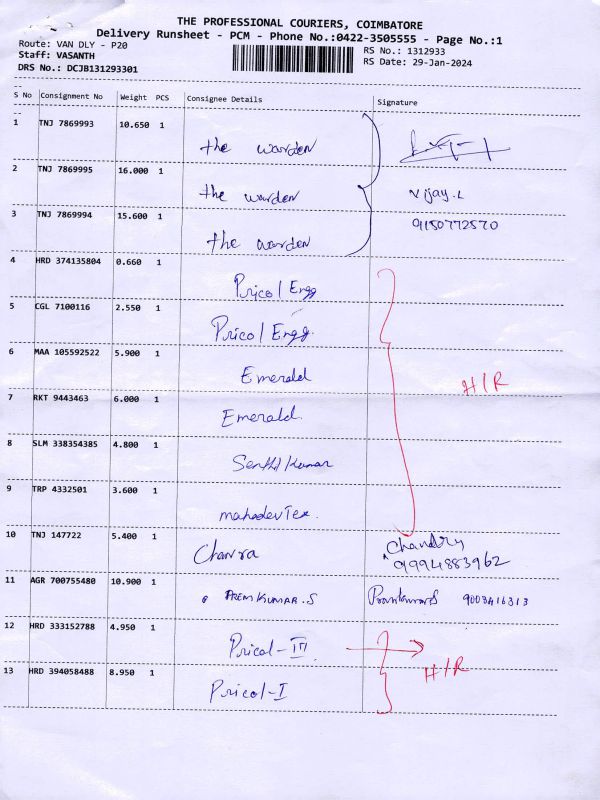 THE PROFESSIONAL COURIERS, COIMBATORE
Delivery Runsheet - PCM - Phone No.:0422-3505555 - Page No.:1
Route: VAN DLY - P20
RS No.: 1312933
Staff: VASANTH
RS Date: 29-Jan-2024
DRS No.: DCJB131293301
S No Consignment No Weight PCS Consignee Details Signature
1 TNJ 7869993 10.650 1
the warden
2 TNJ 7869995 16.000 1
the warden Vijay.L
3 TNJ 7869994 15.600 1 9150772570
the warden
4 HRD 374135804 0.660 1
Pricol Engg
5 CGL 7100116 2.550 1
Pricol Engg.
6 MAA 105592522 5.900 1
Emerald H/R
7 RKT 9443463 6.000 1
Emerald.
8 SLM 338354385 4.800 1
Senthil Kumar
9 TRP 4332501 3.600 1
mahadev Tex.
10 TNJ 147722 5.400 1
Chandru
9994883962
11 AGR 700755480 10.900 1
PREMKUMAR.S 9003416313
12 HRD 333152788 4.950 1
Pricol-III
H/R
13 HRD 394058488 8.950 1
Pricol-I